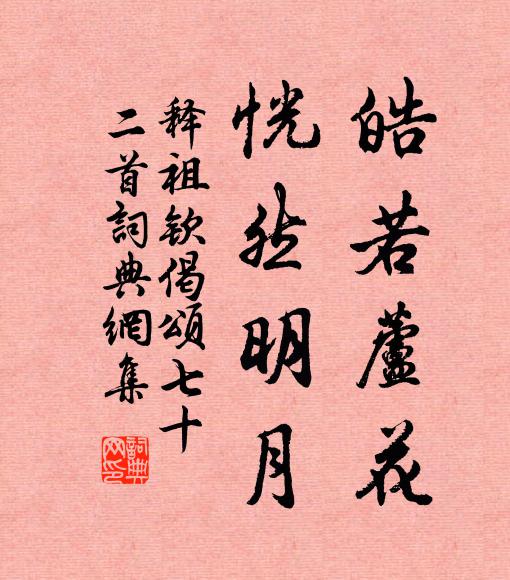 皓若蘆花
恍然明月
释祖钦偈頌七十
二首詞典網集
詞典
网印